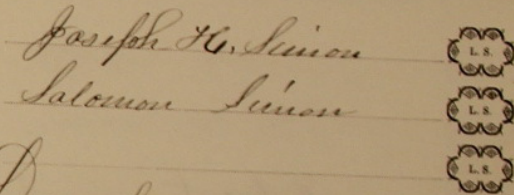 Joseph H. Simon L. S.
Salomon Simon L. S.
L. S.